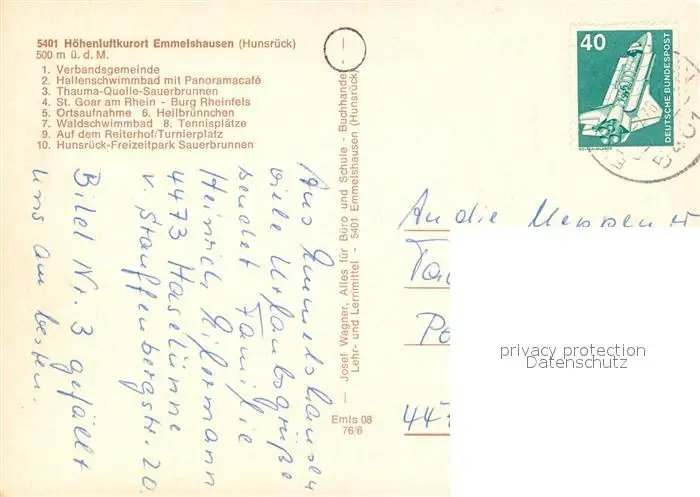 5401 Höhenluftkurort Emmelshausen (Hunsrück)
500 m ü. d. M.
1. Verbandsgemeinde
2. Hallenschwimmbad mit Panoramacafé
3. Thauma-Quelle-Sauerbrunnen
4. St. Goar am Rhein - Burg Rheinfels
5. Ortsaufnahme 6. Heilbrünnchen
7. Waldschwimmbad 8. Tennisplätze
9. Auf dem Reiterhof/Turnierplatz
10. Hunsrück-Freizeitpark Sauerbrunnen
Aus Emmelshausen
viele Urlaubsgrüße
sendet Familie
Heinrich
4473 Haselünne
v. Stauffenbergstr. 20
Bild Nr. 3 gefällt
uns am besten.
— Josef Wagner, Alles für Büro und Schule - Buchhandel —
Lehr- und Lernmittel - 5401 Emmelshausen (Hunsrück)
Emls 08
76/6
40
DEUTSCHE BUNDESPOST
An die Meppen
Po
447
privacy protection
Datenschutz